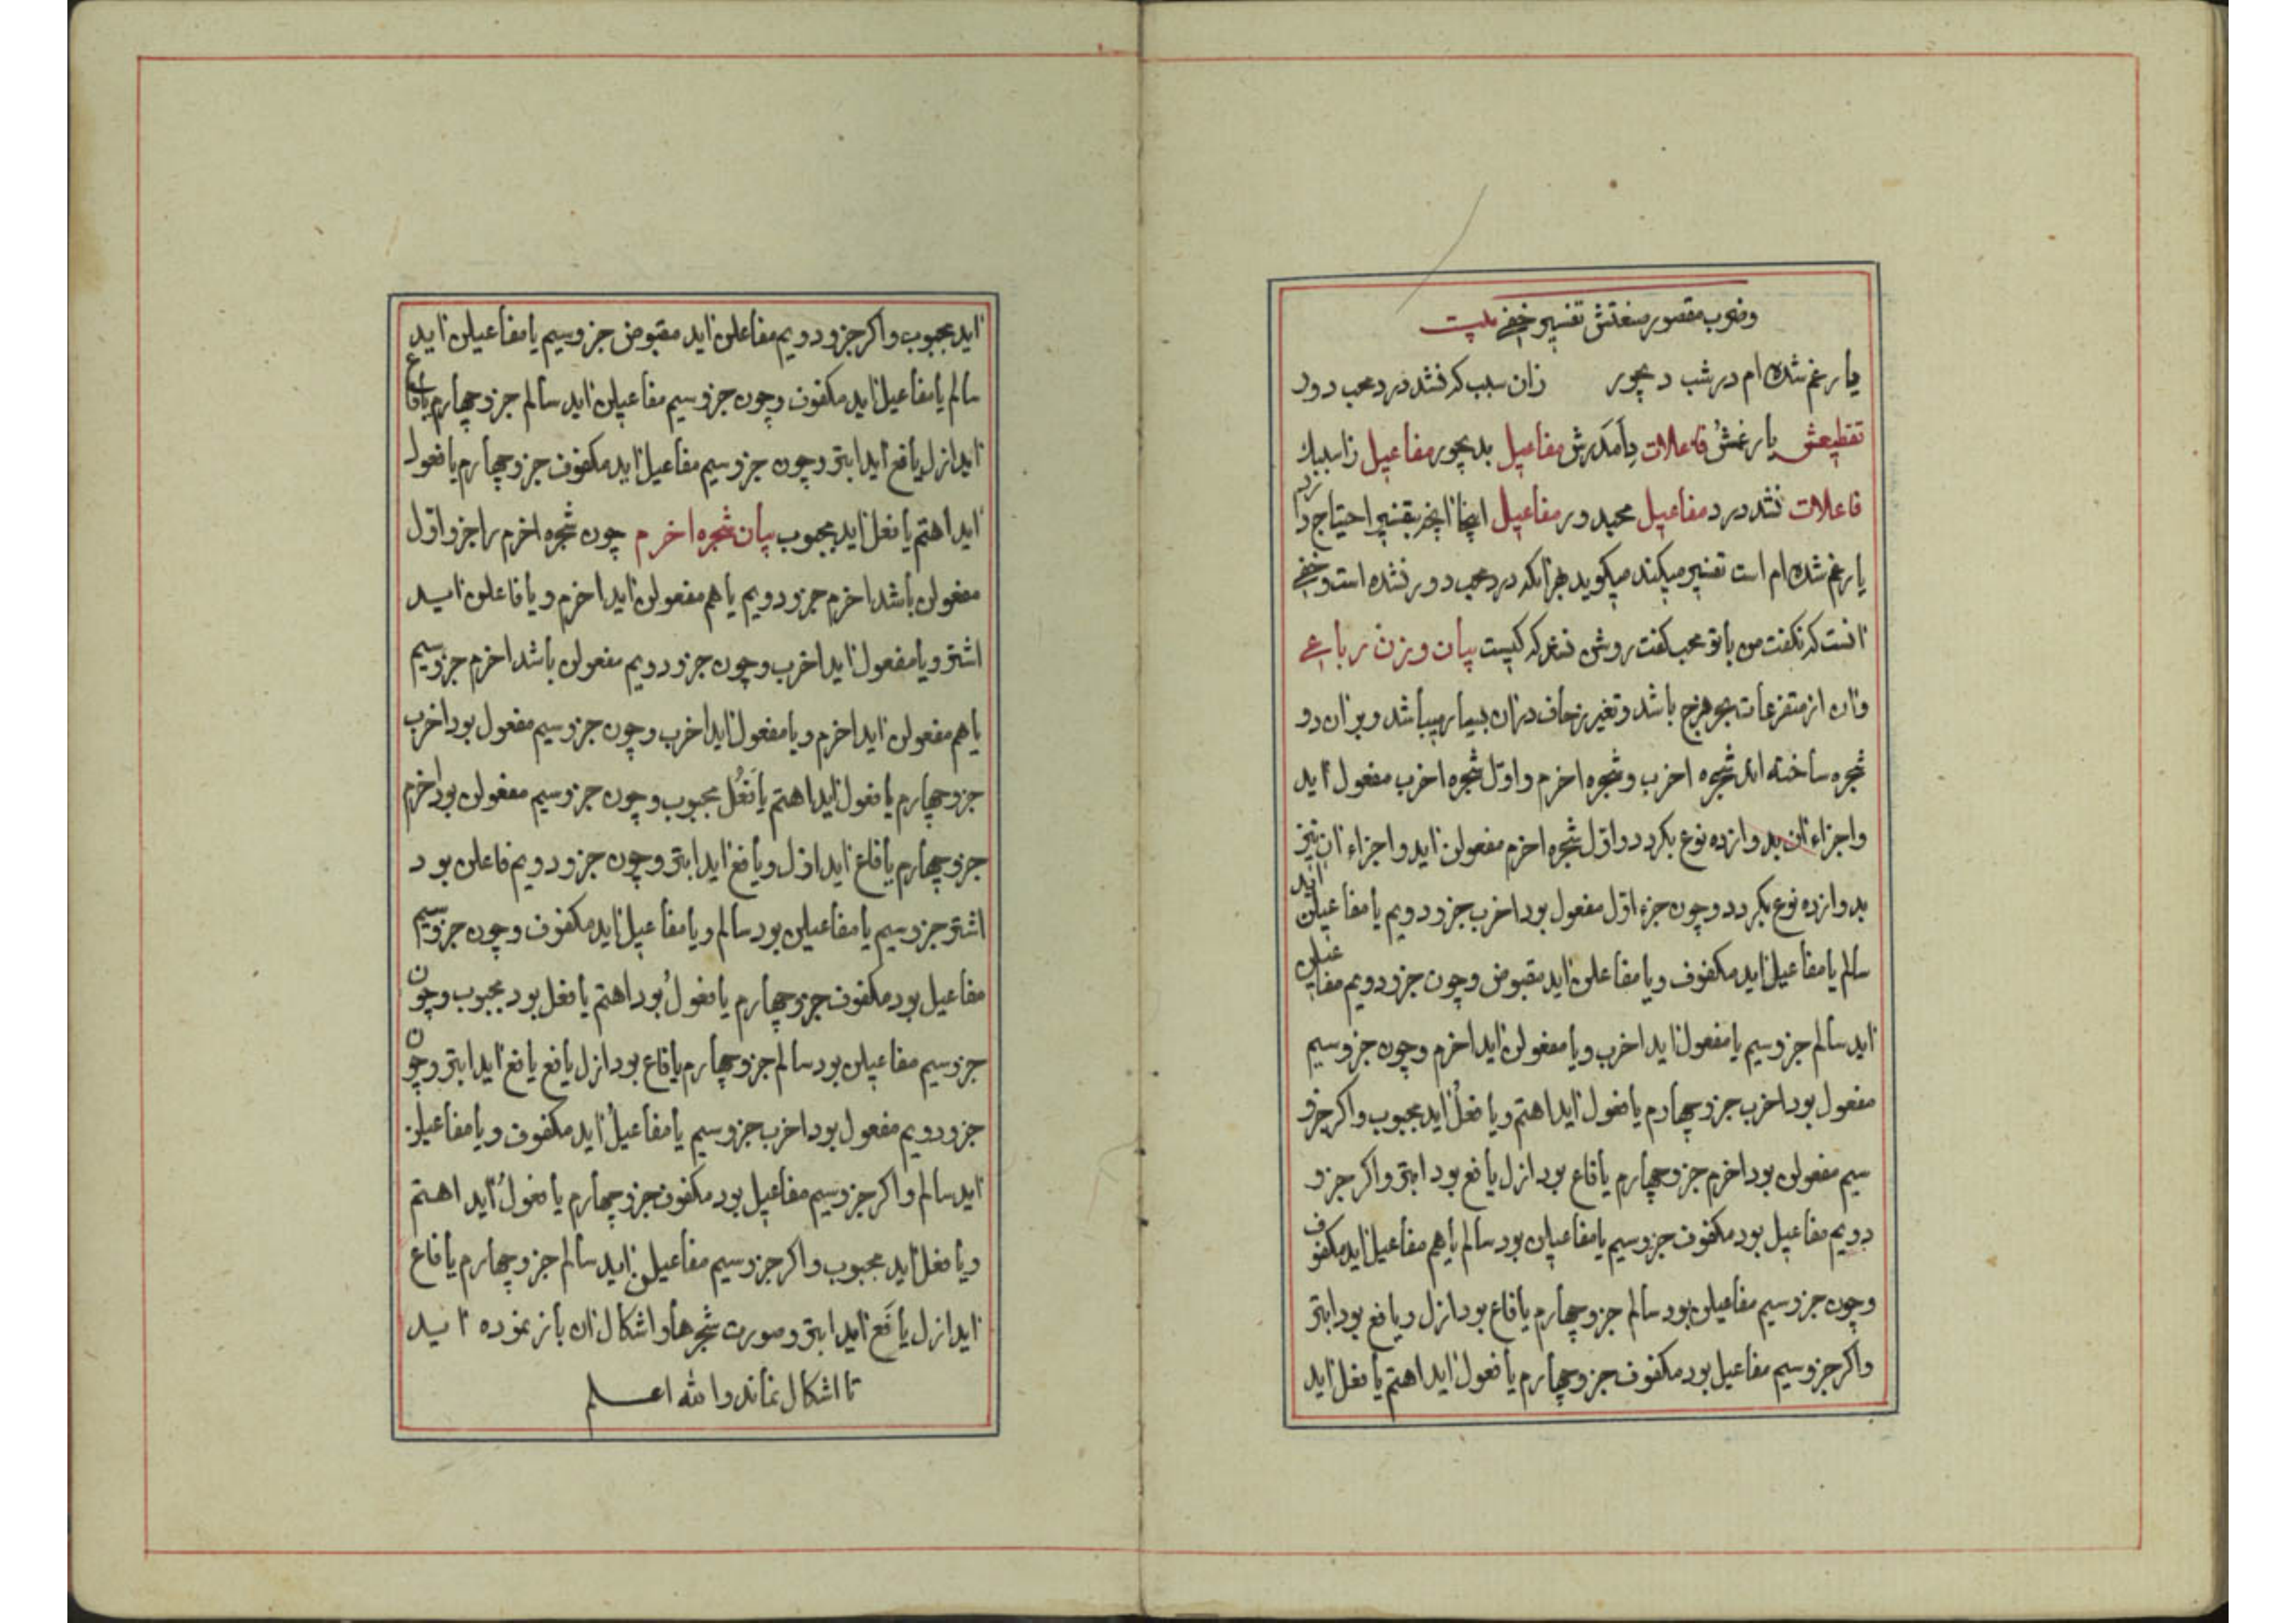 وضرب مقصور صنعتش تفسیر خفی بیت
یار غم شده ام در شب دیجور زان سبب که نشد درد محب دور
تقطیعش یار غمش فاعلات دامدرش مفاعیل بدیجور مفاعیل زاسببک
فاعلات نشد درد مفاعیل محبدور مفاعیل اینجا انچه بتفسیر احتیاج دارد
یار غم شده ام است تفسیر میکند میکوید هزانکه درد محب دور نشده است وخفی
انست که نکفت من با تو محب کفت روشن نشد که کیست بیان وزن رباعی
وان از متفرعات بحر هزج باشد وتغیر زحاف دران بسیار میباشد وبران دو
شجره ساخته اند شجره اخرب وشجره اخرم واول شجره اخرب مفعول اید
واجزاء ان بدوازده نوع بکردد واول شجره اخرم مفعولن اید واجزاء ان نیز
بدوازده نوع بکردد وچون جزء اول مفعول بود اخرب جزو دویم یا مفاعیلن اید
سالم یا مفاعیل اید مکفوف ویا مفاعلن اید مقبوض وچون جزو دویم مفاعیلن
اید سالم جزو سیم یا مفعول اید اخرب ویا مفعولن اید اخرم وچون جزو سیم
مفعول بود اخرب جزو چهارم یا فعول اید اهتم ویا فعل اید مجبوب واکر جزو
سیم مفعولن بود اخرم جزو چهارم یا فاع بود ازل یا فع بود ابتر واکر جزو
دویم مفاعیل بود مکفوف جزو سیم یا مفاعیلن بود سالم یا هم مفاعیل اید مکفوف
وچون جزو سیم مفاعیلن بود سالم جزو چهارم یا فاع بود ازل ویا فع بود ابتر
واکر جزو سیم مفاعیل بود مکفوف جزو چهارم یا فعول اید اهتم یا فعل اید
اید مجبوب واکر جزو دویم مفاعلن اید مقبوض جزو سیم یا مفاعیلن اید
سالم یا مفاعیل اید مکفوف وچون جزو سیم مفاعیلن اید سالم جزو چهارم یا فاع
اید ازل یا فع اید ابتر وچون جزو سیم مفاعیل اید مکفوف جزو چهارم یا فعول
اید اهتم یا فعل اید مجبوب بیان شجره اخرم چون شجره اخرم را جزو اول
مفعولن باشد اخرم جزو دویم یا هم مفعولن اید اخرم ویا فاعلن اید
اشتر ویا مفعول اید اخرب وچون جزو دویم مفعولن باشد اخرم جزو سیم
یا هم مفعولن اید اخرم ویا مفعول اید اخرب وچون جزو سیم مفعول بود اخرب
جزو چهارم یا فعول اید اهتم یا فَعُل مجبوب وچون جزو سیم مفعولن بود اخرم
جزو چهارم یا فاع اید ازل ویا فع اید ابتر وچون جزو دویم فاعلن بود
اشتر جزو سیم یا مفاعیلن بود سالم ویا مفاعیل اید مکفوف وچون جزو سیم
مفاعیل بود مکفوف جزو چهارم یا فعولُ بود اهتم یا فعل بود مجبوب وچون
جزو سیم مفاعیلن بود سالم جزو چهارم یا فاع بود ازل یا فع یا فع اید ابتر وچون
جزو دویم مفعول بود اخرب جزو سیم یا مفاعیلُ اید مکفوف ویا مفاعیلن
اید سالم واکر جزو سیم مفاعیل بود مکفوف جزو چهارم یا فعولُ اید اهتم
ویا فعل اید مجبوب واکر جزو سیم مفاعیلن اید سالم جزو چهارم یا فاع
اید ازل یا فَع اید ابتر وصورت شجرها واشکال ان باز نموده اید
تا اشکال نماند والله اعلم